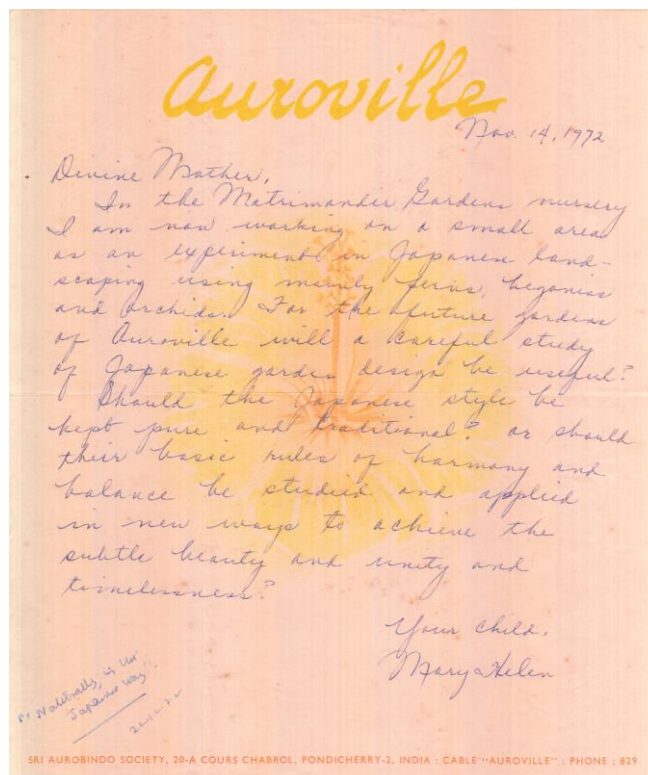 Auroville
Nov. 14, 1972
Divine Mother,
In the Matrimandir Gardens nursery
I am now working on a small area
as an experiment in Japanese land-
scaping using mainly ferns, begonias
and orchids. For the future gardens
of Auroville will a careful study
of Japanese garden design be useful?
Should the Japanese style be
kept pure and traditional? or should
their basic rules of harmony and
balance be studied and applied
in new ways to achieve the
subtle beauty and unity and
timelessness?
Your child,
Mary Helen
Naturally,
Japanese way
SRI AUROBINDO SOCIETY, 20-A COURS CHABROL, PONDICHERRY-2, INDIA : CABLE "AUROVILLE" : PHONE : 829